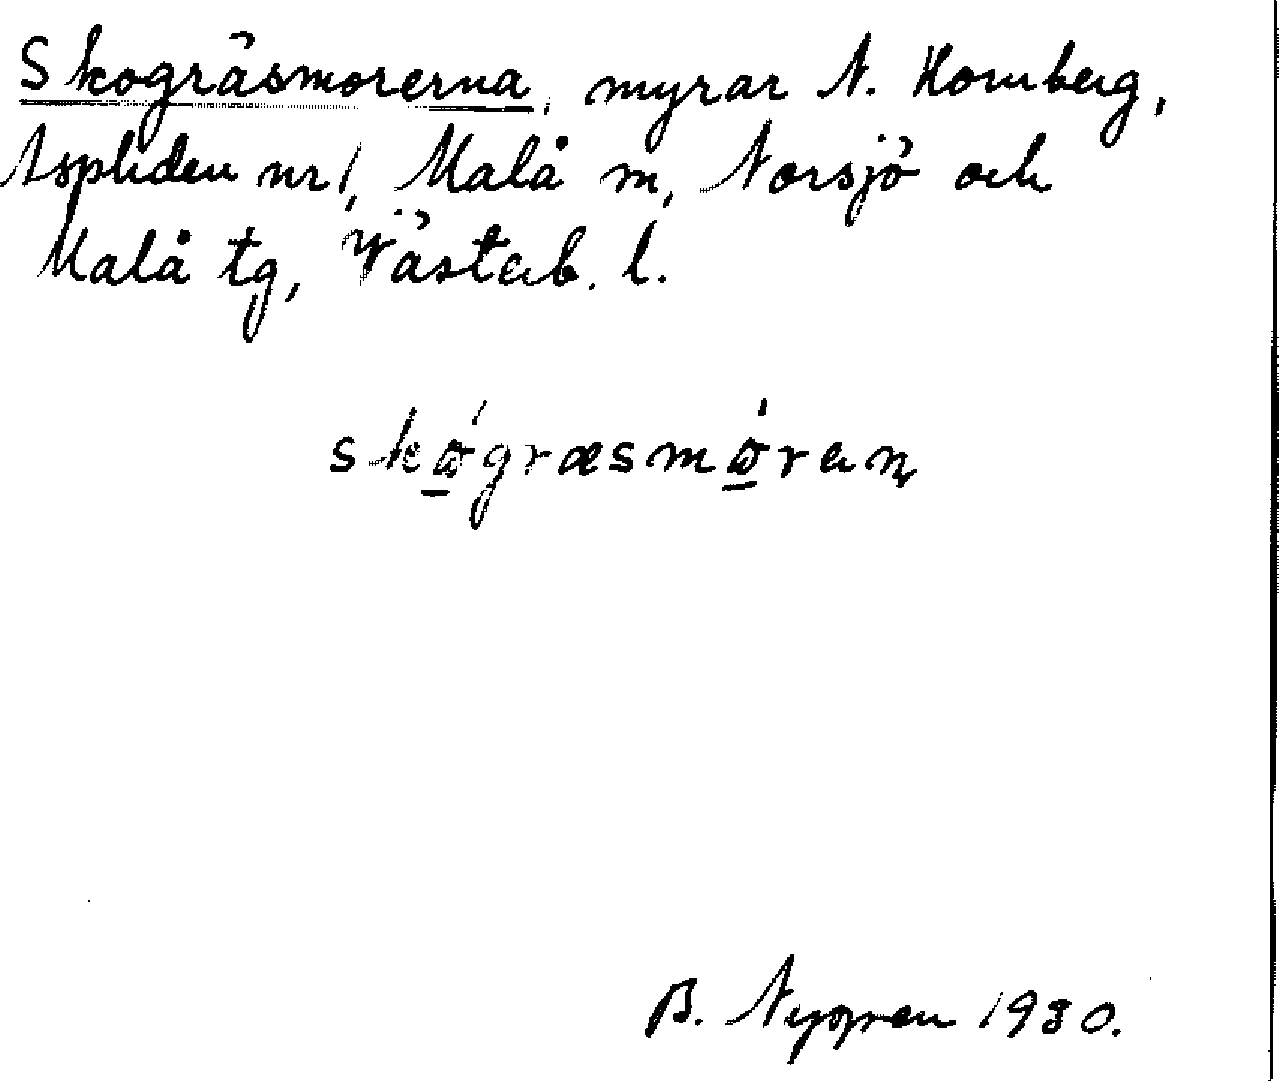 Skogräsmorerna, myrar N. Hornberg,
Aspliden nr 1, Malå m, Norsjö och
Malå tg, Västerb. l.
skǫ́græsmǫ́ran̥
B. Nygren 1930.